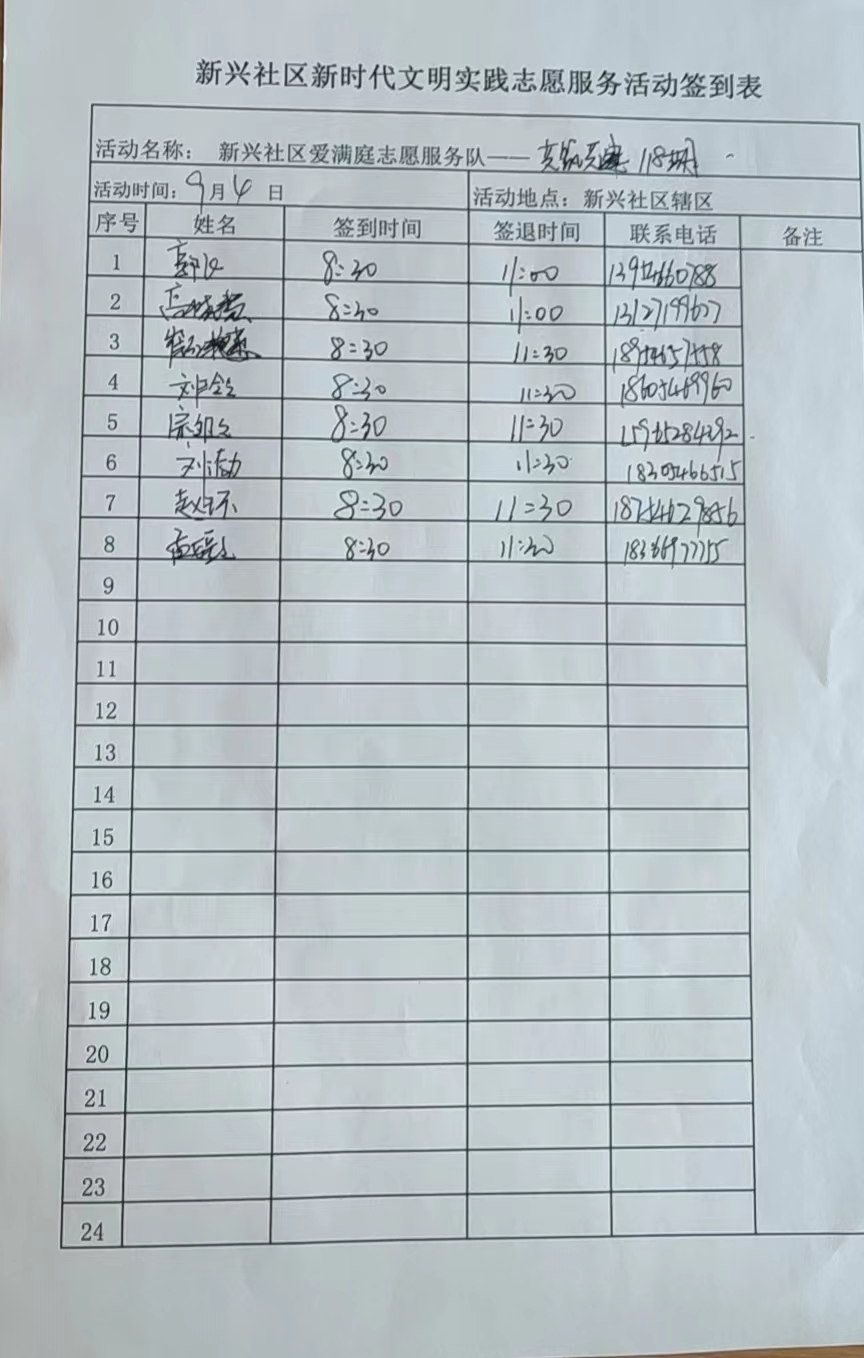 新兴社区新时代文明实践志愿服务活动签到表
活动名称： 新兴社区爱满庭志愿服务队—— 118期
活动时间：9月4日 活动地点：新兴社区辖区
序号 姓名 签到时间 签退时间 联系电话 备注
1 8:30 11:00
2 8:30 11:00 13127199607
3 8:30 11:30
4 8:30 11:30 18605469960
5 8:30 11:30
6 8:30 11:30 18305466515
7 赵环 8:30 11:30 18754629856
8 8:30 11:30
9
10
11
12
13
14
15
16
17
18
19
20
21
22
23
24